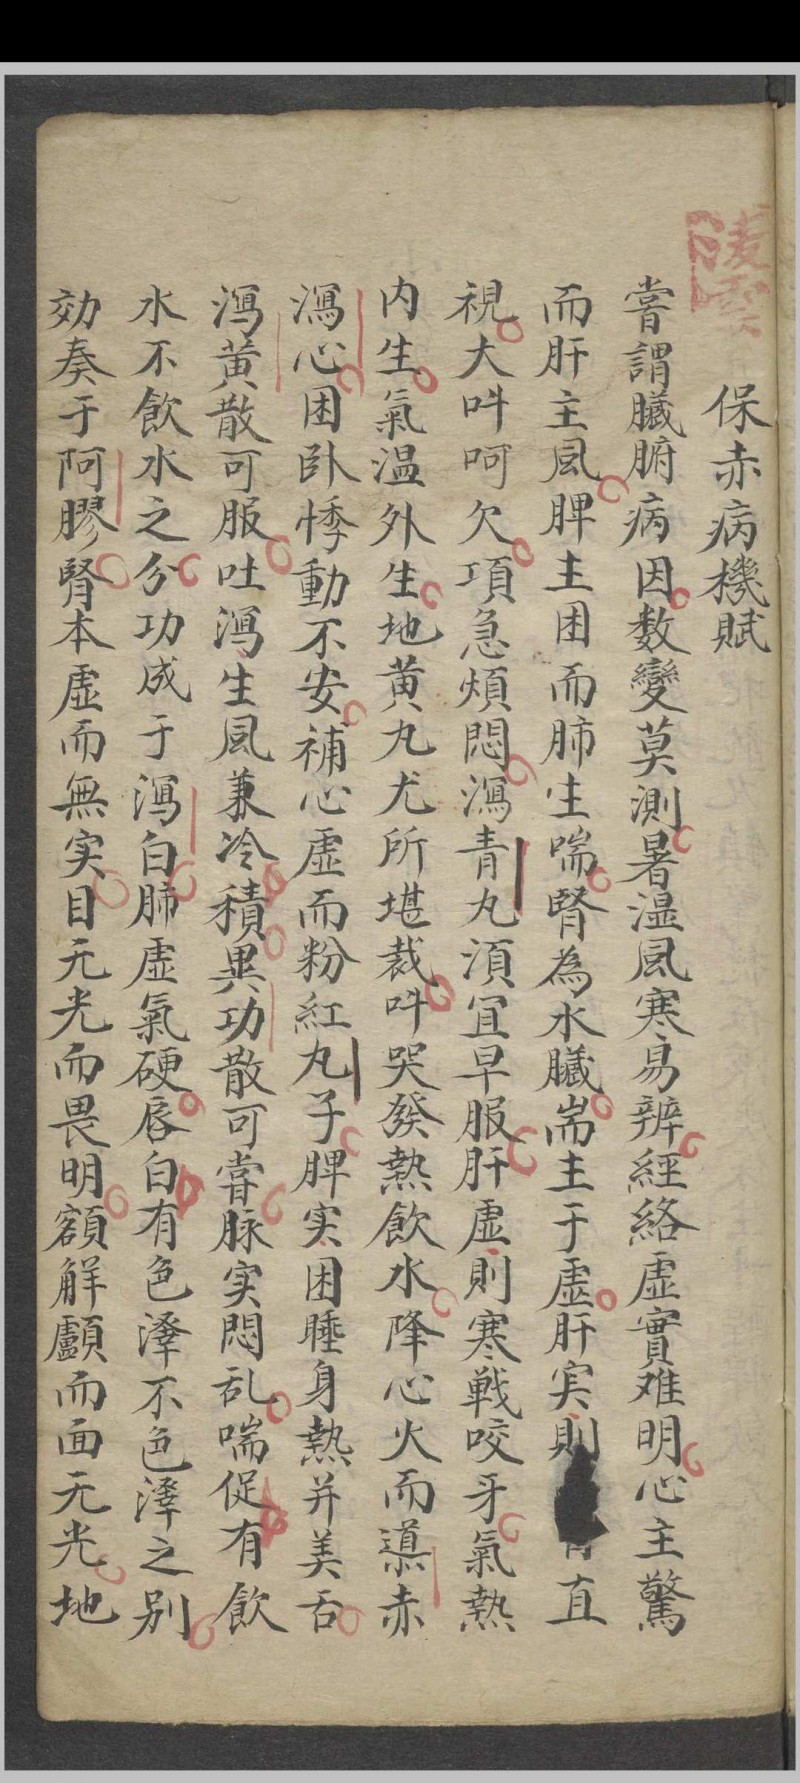 保赤病機賦
嘗謂臟腑病因数變莫測暑湿風寒易辨經絡虛實难明心主驚
而肝主風脾主困而肺生喘腎為水臟耑主于虛肝实則直
視大呌呵欠項急煩悶瀉青丸湏宜早服肝虛則寒戰咬牙氣熱
内生氣温外生地黄丸尤所堪裁呌哭發熱飲水降心火而導赤
瀉心困卧悸動不安補心虛而粉紅丸子脾实困睡身熱并美舌
瀉黄散可服吐瀉生風兼冷積異功散可嘗脉实悶乱喘促有飲
水不飲水之分功成于瀉白肺虛氣硬唇白有色澤不色澤之别
効奏于阿膠腎本虛而無实目无光而畏明額解顱而面无光地